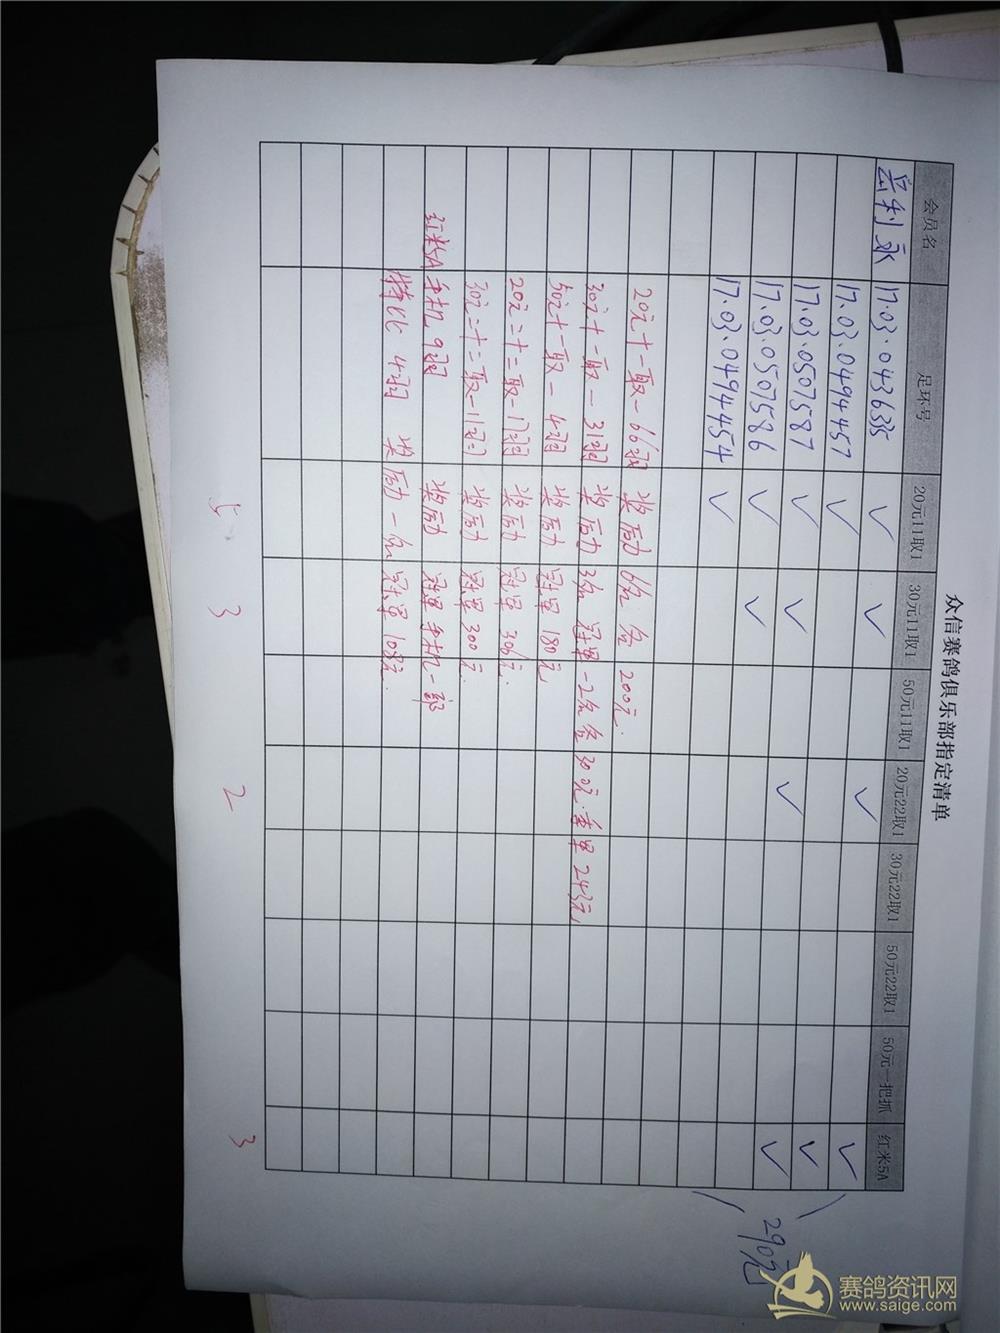 众信赛鸽俱乐部指定清单
会员名 足环号 20元11取1 30元11取1 50元11取1 20元22取1 30元22取1 50元22取1 50元一把抓 红米5A
岳利永 17.03.0436335 ✓ ✓
17.03.0494457 ✓ ✓ ✓
17.03.0507587 ✓ ✓ ✓
17.03.0507586 ✓ ✓ ✓ ✓
17.03.0494454 ✓
290元
20元十一取一 66羽 奖励 6名 200元.
30元十一取一 31羽 奖励 冠军-2名 300元 季军 243元
50元十一取一 4羽 奖励 冠军 180元
20元二十二取一 17羽 奖励 冠军 306元.
30元二十二取一 11羽 奖励 冠军 300元
红米5A手机 9羽 奖励 冠军手机一部
特比 4羽 奖励一名 冠军 108元.
5 3 2 3
赛鸽资讯网
www.saige.com